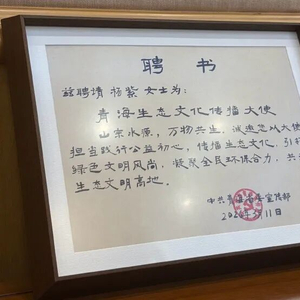 聘 书
兹聘请 杨紫 女士为:
青海生态文化传播大使
山宗水源,万物共生,诚邀您以大使
担当践行公益初心,传播生态文化,引
绿色文明风尚,凝聚全民环保合力,共
生态文明高地。
中共青海省委宣传部
11日